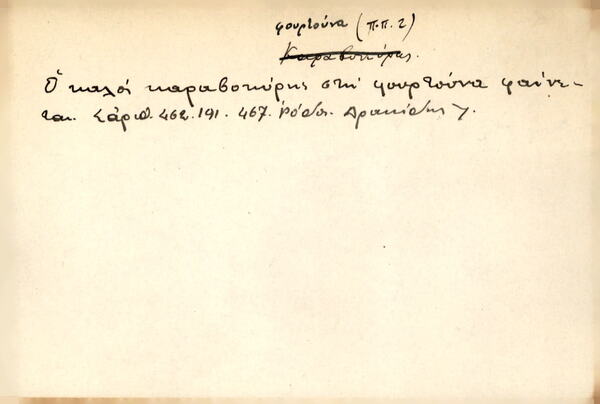 φουρτούνα (π.π. 2)
Καραβοκύρης.
Ὁ καλός καραβοκύρης στή φουρτούνα φαίνε-
ται. Σάριθ. 462. 191. 467. Ῥόδος. Δρακίδης Γ.